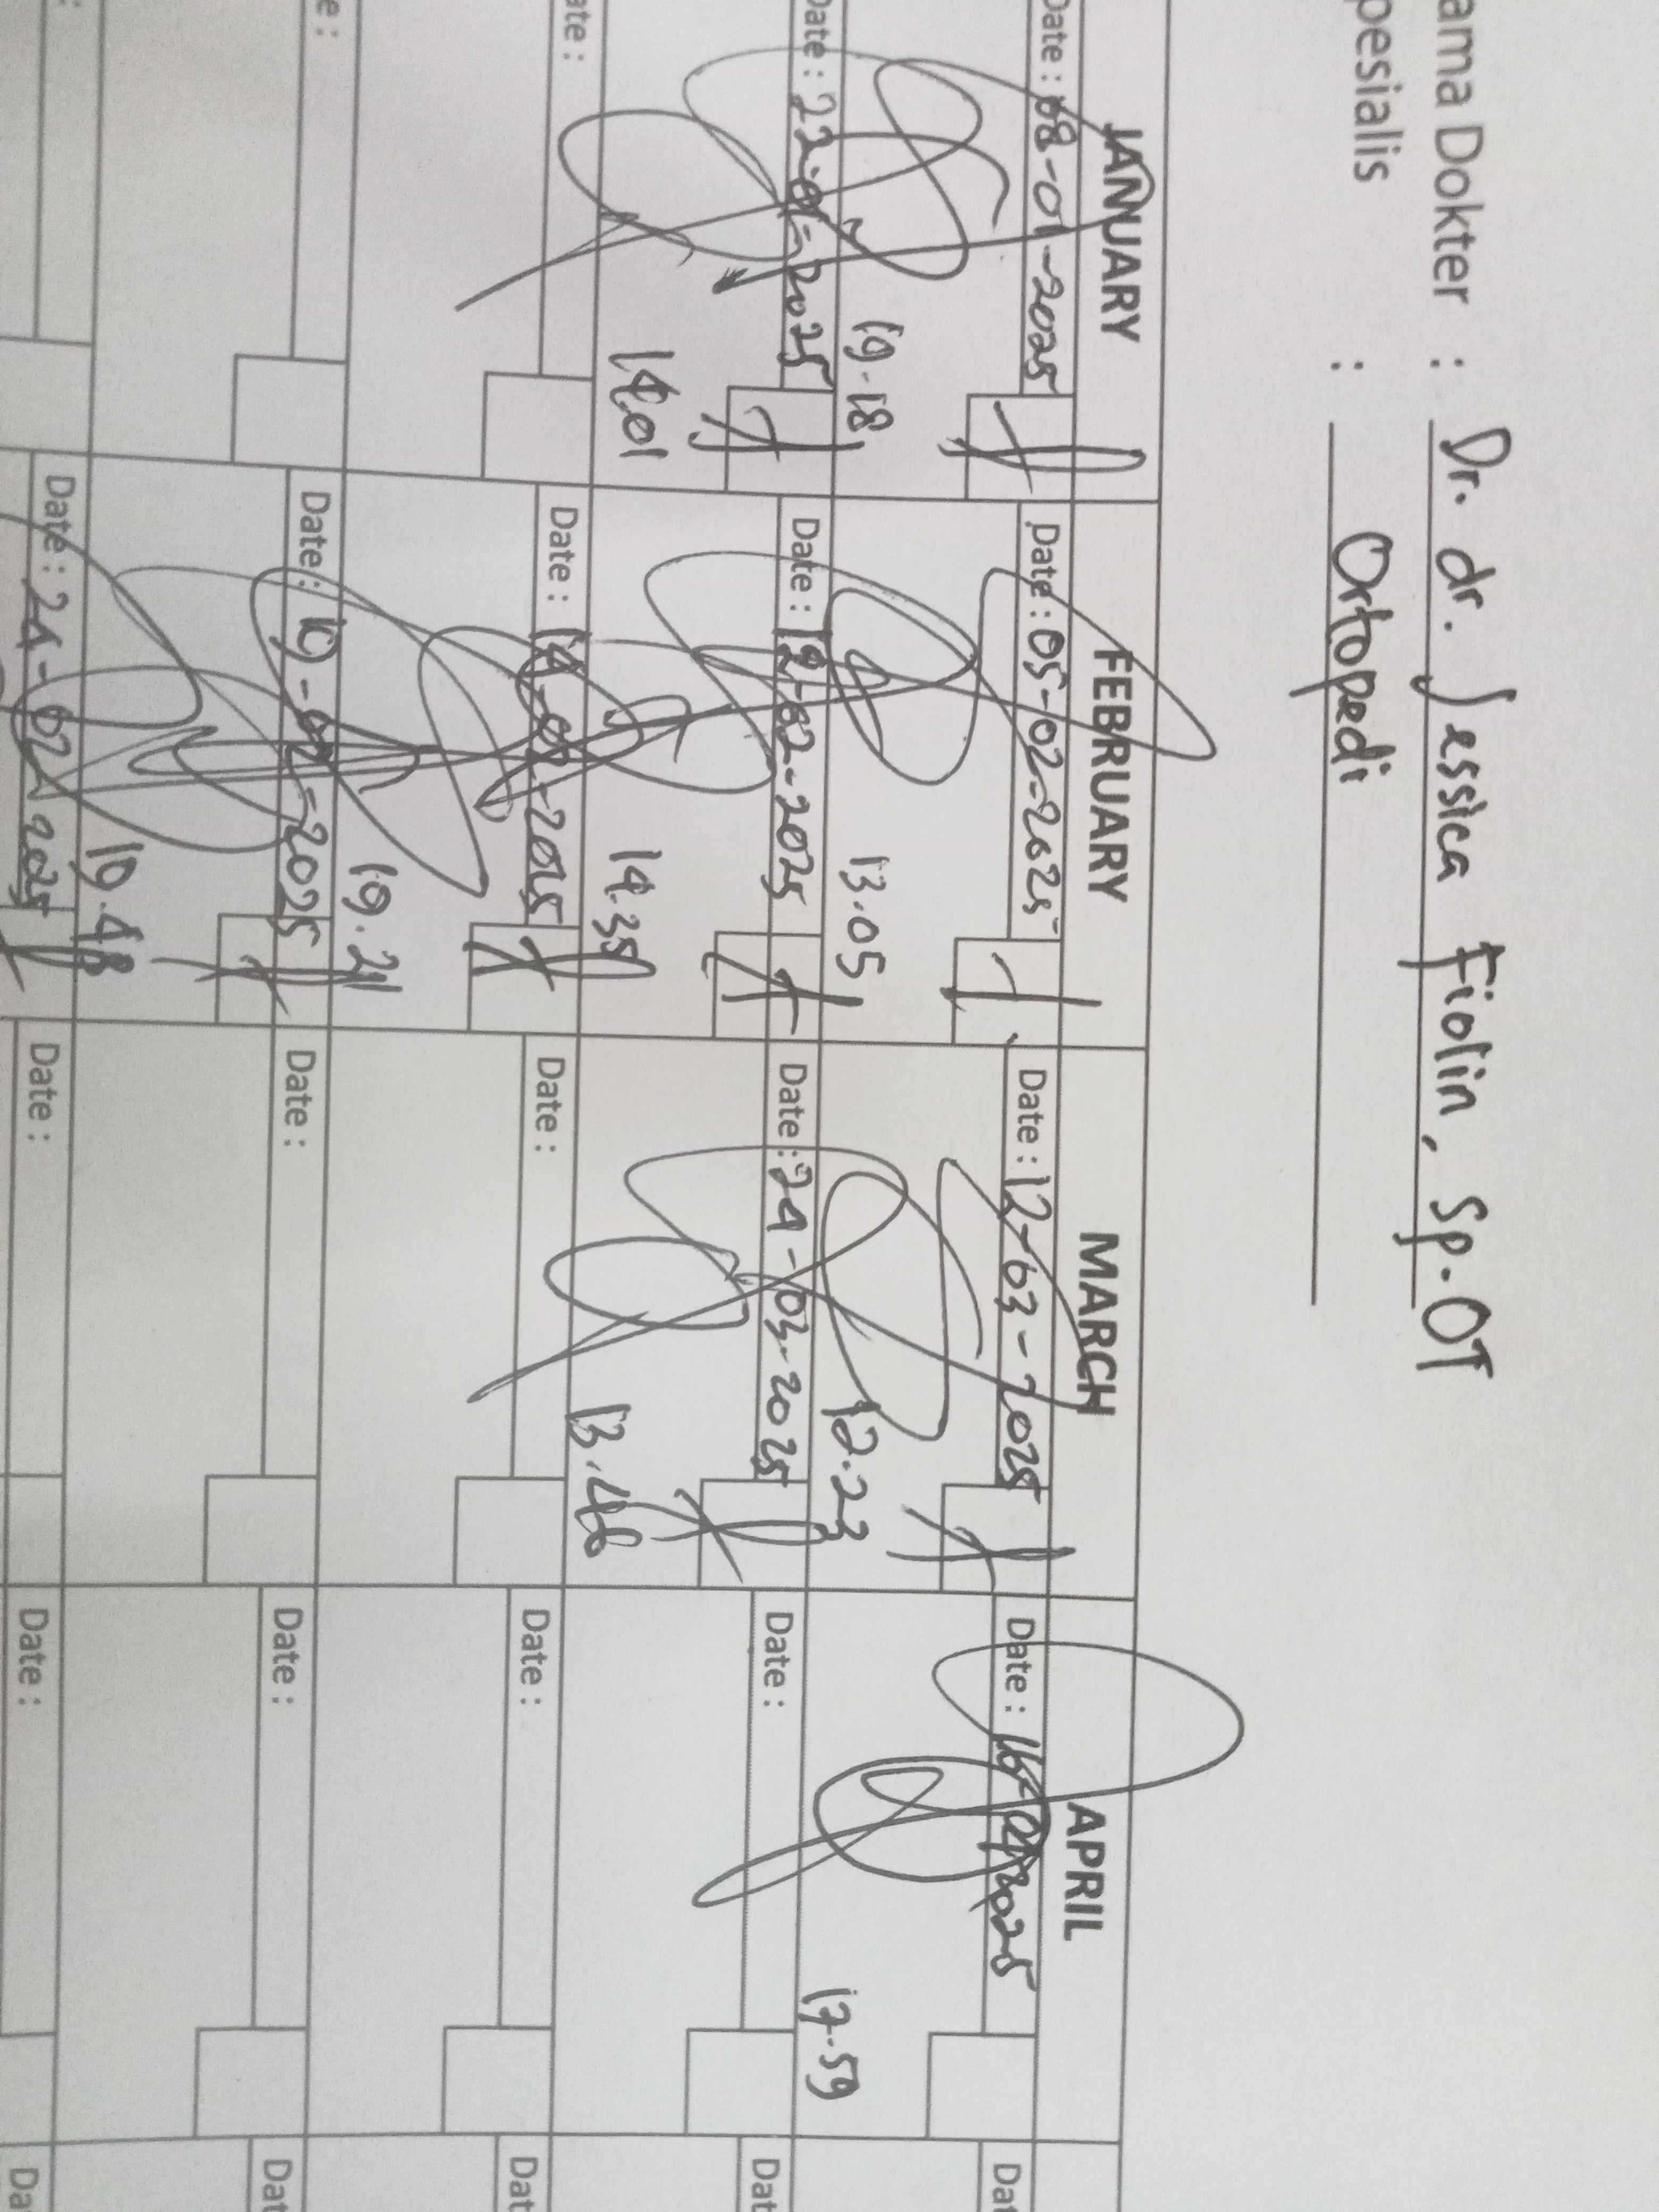 ama Dokter : Dr. dr. Jessica Fiolin, Sp.OT
pesialis : Ortopedi
JANUARY FEBRUARY MARCH APRIL
Date : 08-01-2025 Date : 05-02-2025 Date : 12-03-2025 Date : 16-04-2025 Dat
19.18 13.05 12.23 17.59
Date : 22-01-2025 Date : 12-02-2025 Date : 24-03-2025 Date : Dat
14.01 14.35 13.46
ate : Date : 14-02-2025 Date : Date : Dat
19.21
e : Date : 19-02-2025 Date : Date : Dat
19.48
: Date : 24-02-2025 Date : Date : Da